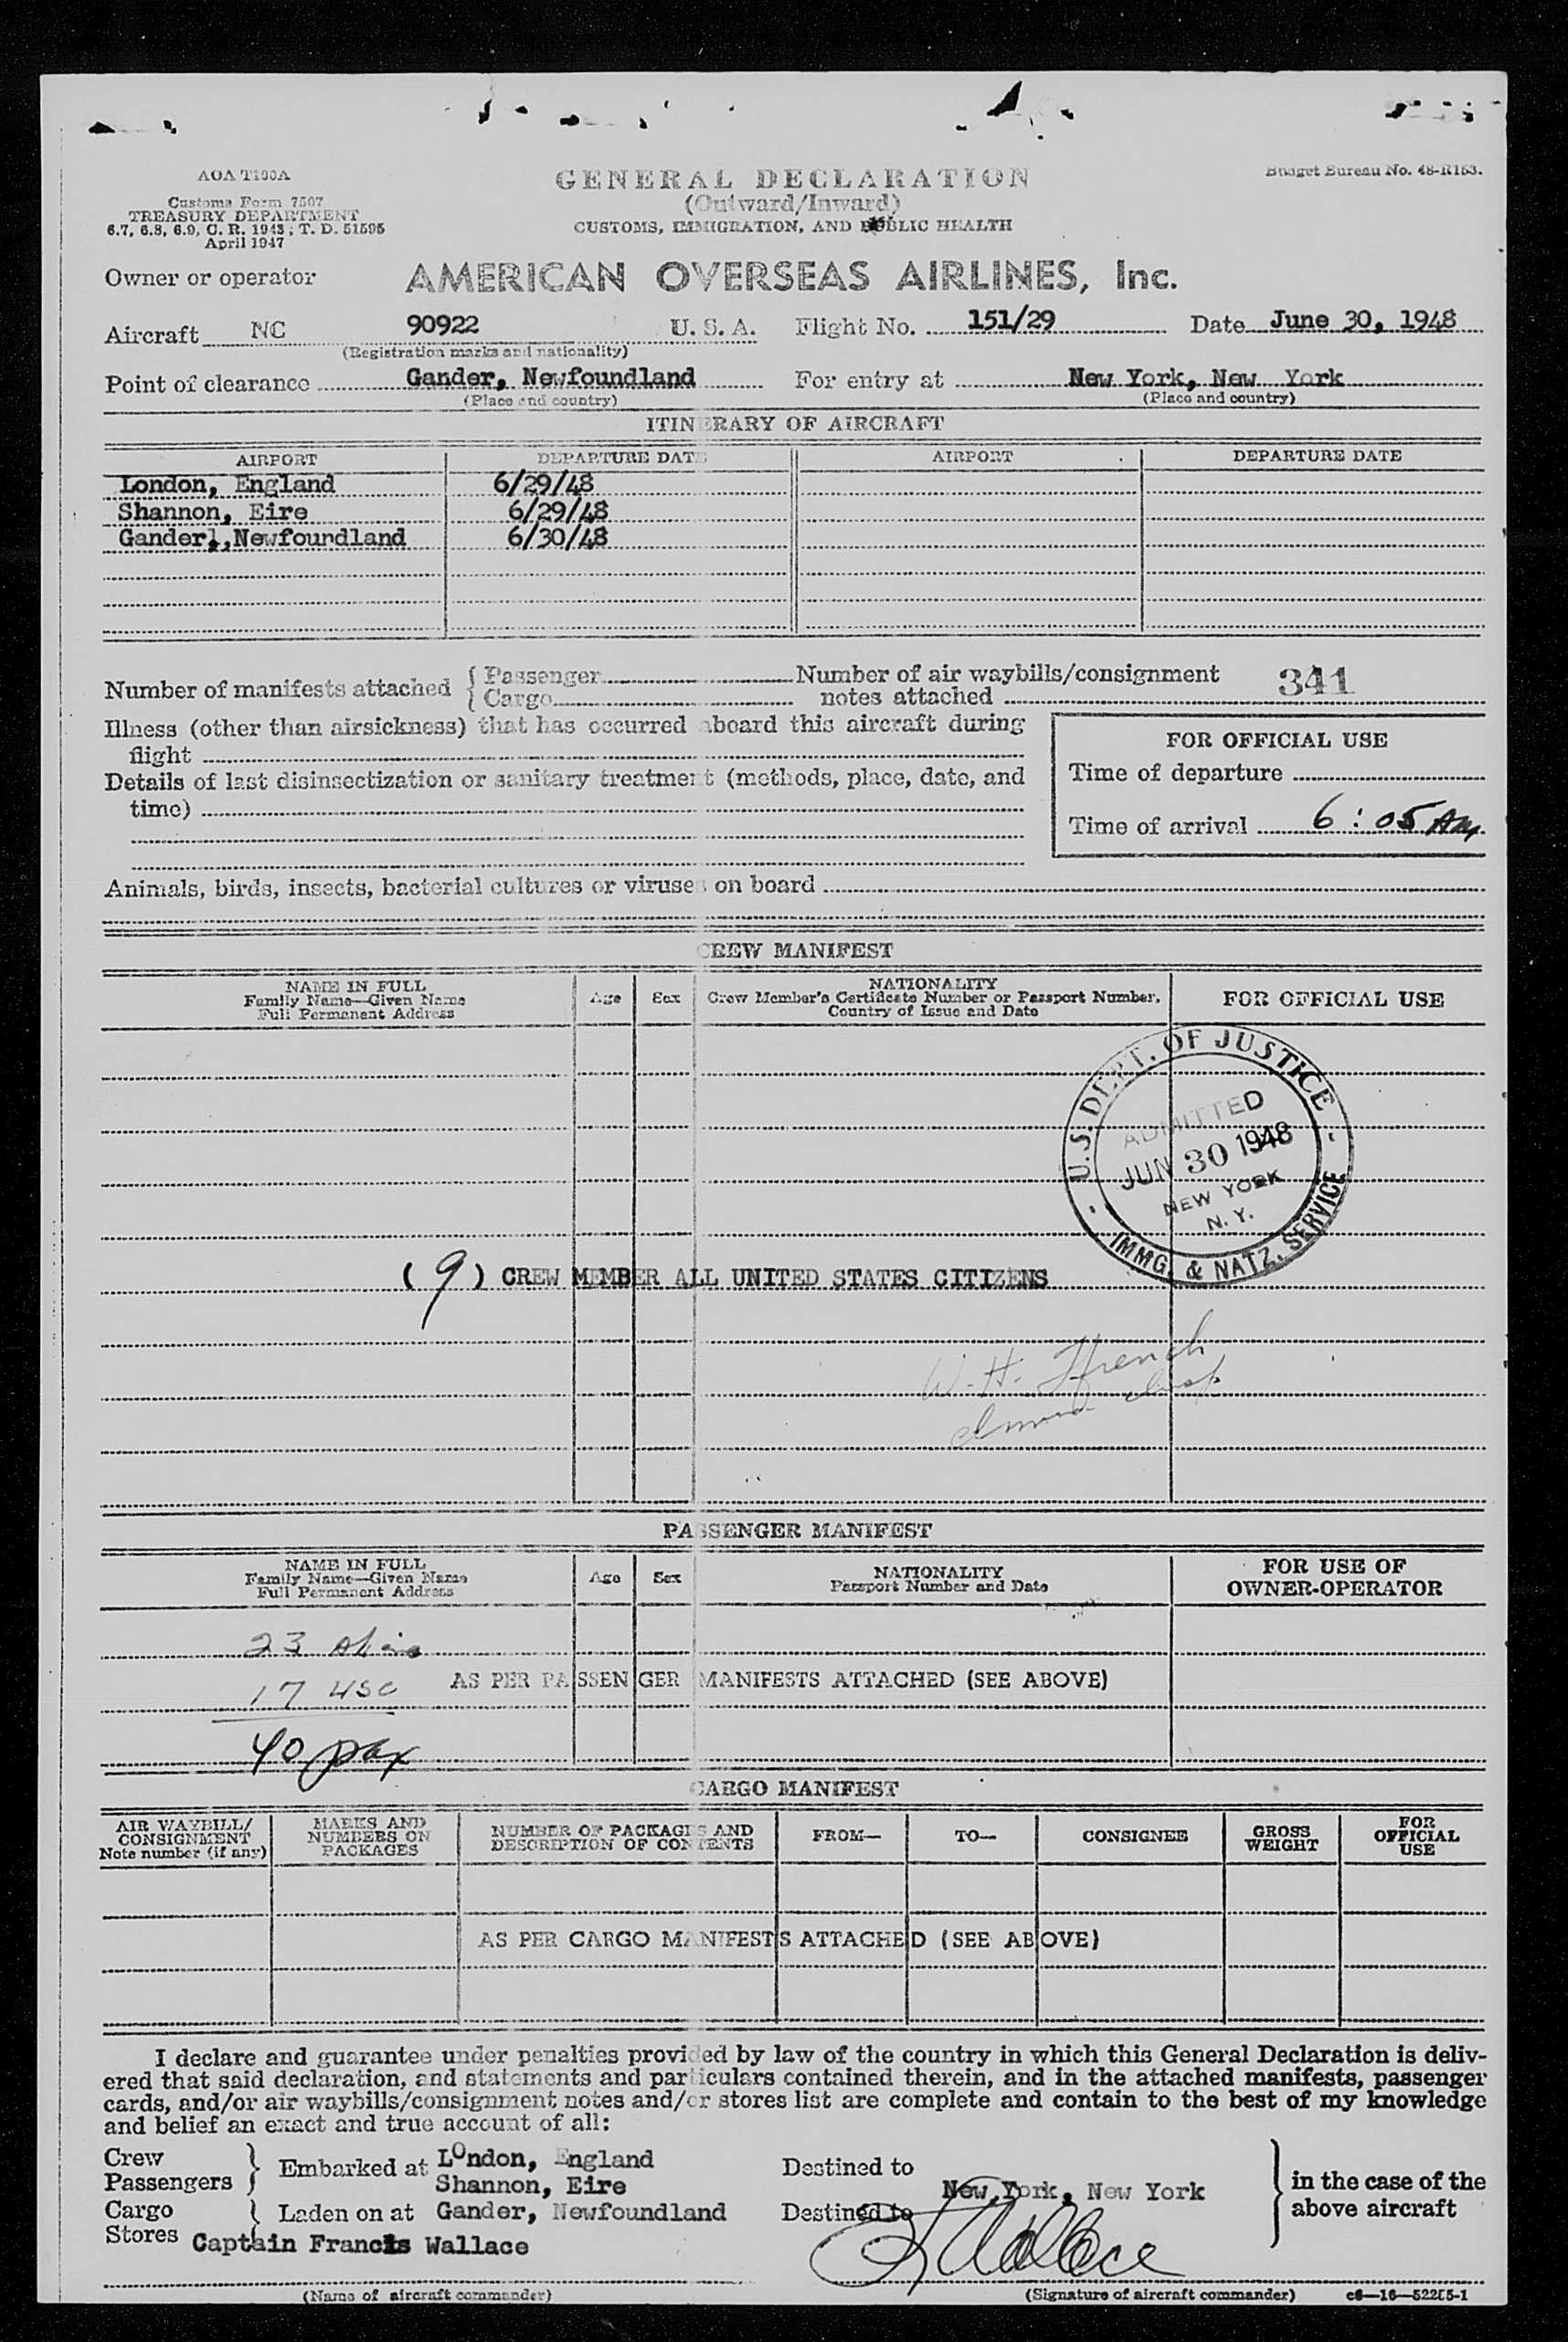 AOA T100A
Customs Form 7507
TREASURY DEPARTMENT
6.7, 6.8, 6.9, C. R. 1943; T. D. 51595
April 1947
GENERAL DECLARATION
(Outward/Inward)
CUSTOMS, IMMIGRATION, AND PUBLIC HEALTH
Budget Bureau No. 48-R153.
Owner or operator AMERICAN OVERSEAS AIRLINES, Inc.
Aircraft NC 90922 U. S. A. Flight No. 151/29 Date June 30, 1948
(Registration marks and nationality)
Point of clearance Gander, Newfoundland For entry at New York, New York
(Place and country) (Place and country)
ITINERARY OF AIRCRAFT
AIRPORT DEPARTURE DATE AIRPORT DEPARTURE DATE
London, England 6/29/48
Shannon, Eire 6/29/48
Gander,,Newfoundland 6/30/48
Number of manifests attached { Passenger Cargo
Number of air waybills/consignment notes attached 341
Illness (other than airsickness) that has occurred aboard this aircraft during
flight
Details of last disinsectization or sanitary treatment (methods, place, date, and
time)
FOR OFFICIAL USE
Time of departure
Time of arrival 6:05 AM
Animals, birds, insects, bacterial cultures or viruses on board
CREW MANIFEST
NAME IN FULL
Family Name—Given Name
Full Permanent Address
Age Sex
NATIONALITY
Crew Member's Certificate Number or Passport Number,
Country of Issue and Date
FOR OFFICIAL USE
U.S. DEPT. OF JUSTICE
ADMITTED
JUN 30 1948
NEW YORK
N. Y.
IMMG. & NATZ. SERVICE
(9) CREW MEMBER ALL UNITED STATES CITIZENS
W. H. Ffrench
PASSENGER MANIFEST
NAME IN FULL
Family Name—Given Name
Full Permanent Address
Age Sex
NATIONALITY
Passport Number and Date
FOR USE OF
OWNER-OPERATOR
23 Alien
17 USC
AS PER PASSENGER MANIFESTS ATTACHED (SEE ABOVE)
40 pax
CARGO MANIFEST
AIR WAYBILL/
CONSIGNMENT
Note number (if any)
MARKS AND
NUMBERS ON
PACKAGES
NUMBER OF PACKAGES AND
DESCRIPTION OF CONTENTS
FROM— TO— CONSIGNEE
GROSS
WEIGHT
FOR
OFFICIAL
USE
AS PER CARGO MANIFESTS ATTACHED (SEE ABOVE)
I declare and guarantee under penalties provided by law of the country in which this General Declaration is deliv-
ered that said declaration, and statements and particulars contained therein, and in the attached manifests, passenger
cards, and/or air waybills/consignment notes and/or stores list are complete and contain to the best of my knowledge
and belief an exact and true account of all:
Crew
Passengers } Embarked at London, England
Shannon, Eire
Cargo
Stores } Laden on at Gander, Newfoundland
Destined to
New York, New York
Destined to
} in the case of the
above aircraft
Captain Francis Wallace
F Wallace
(Name of aircraft commander) (Signature of aircraft commander) c6—16—52255-1